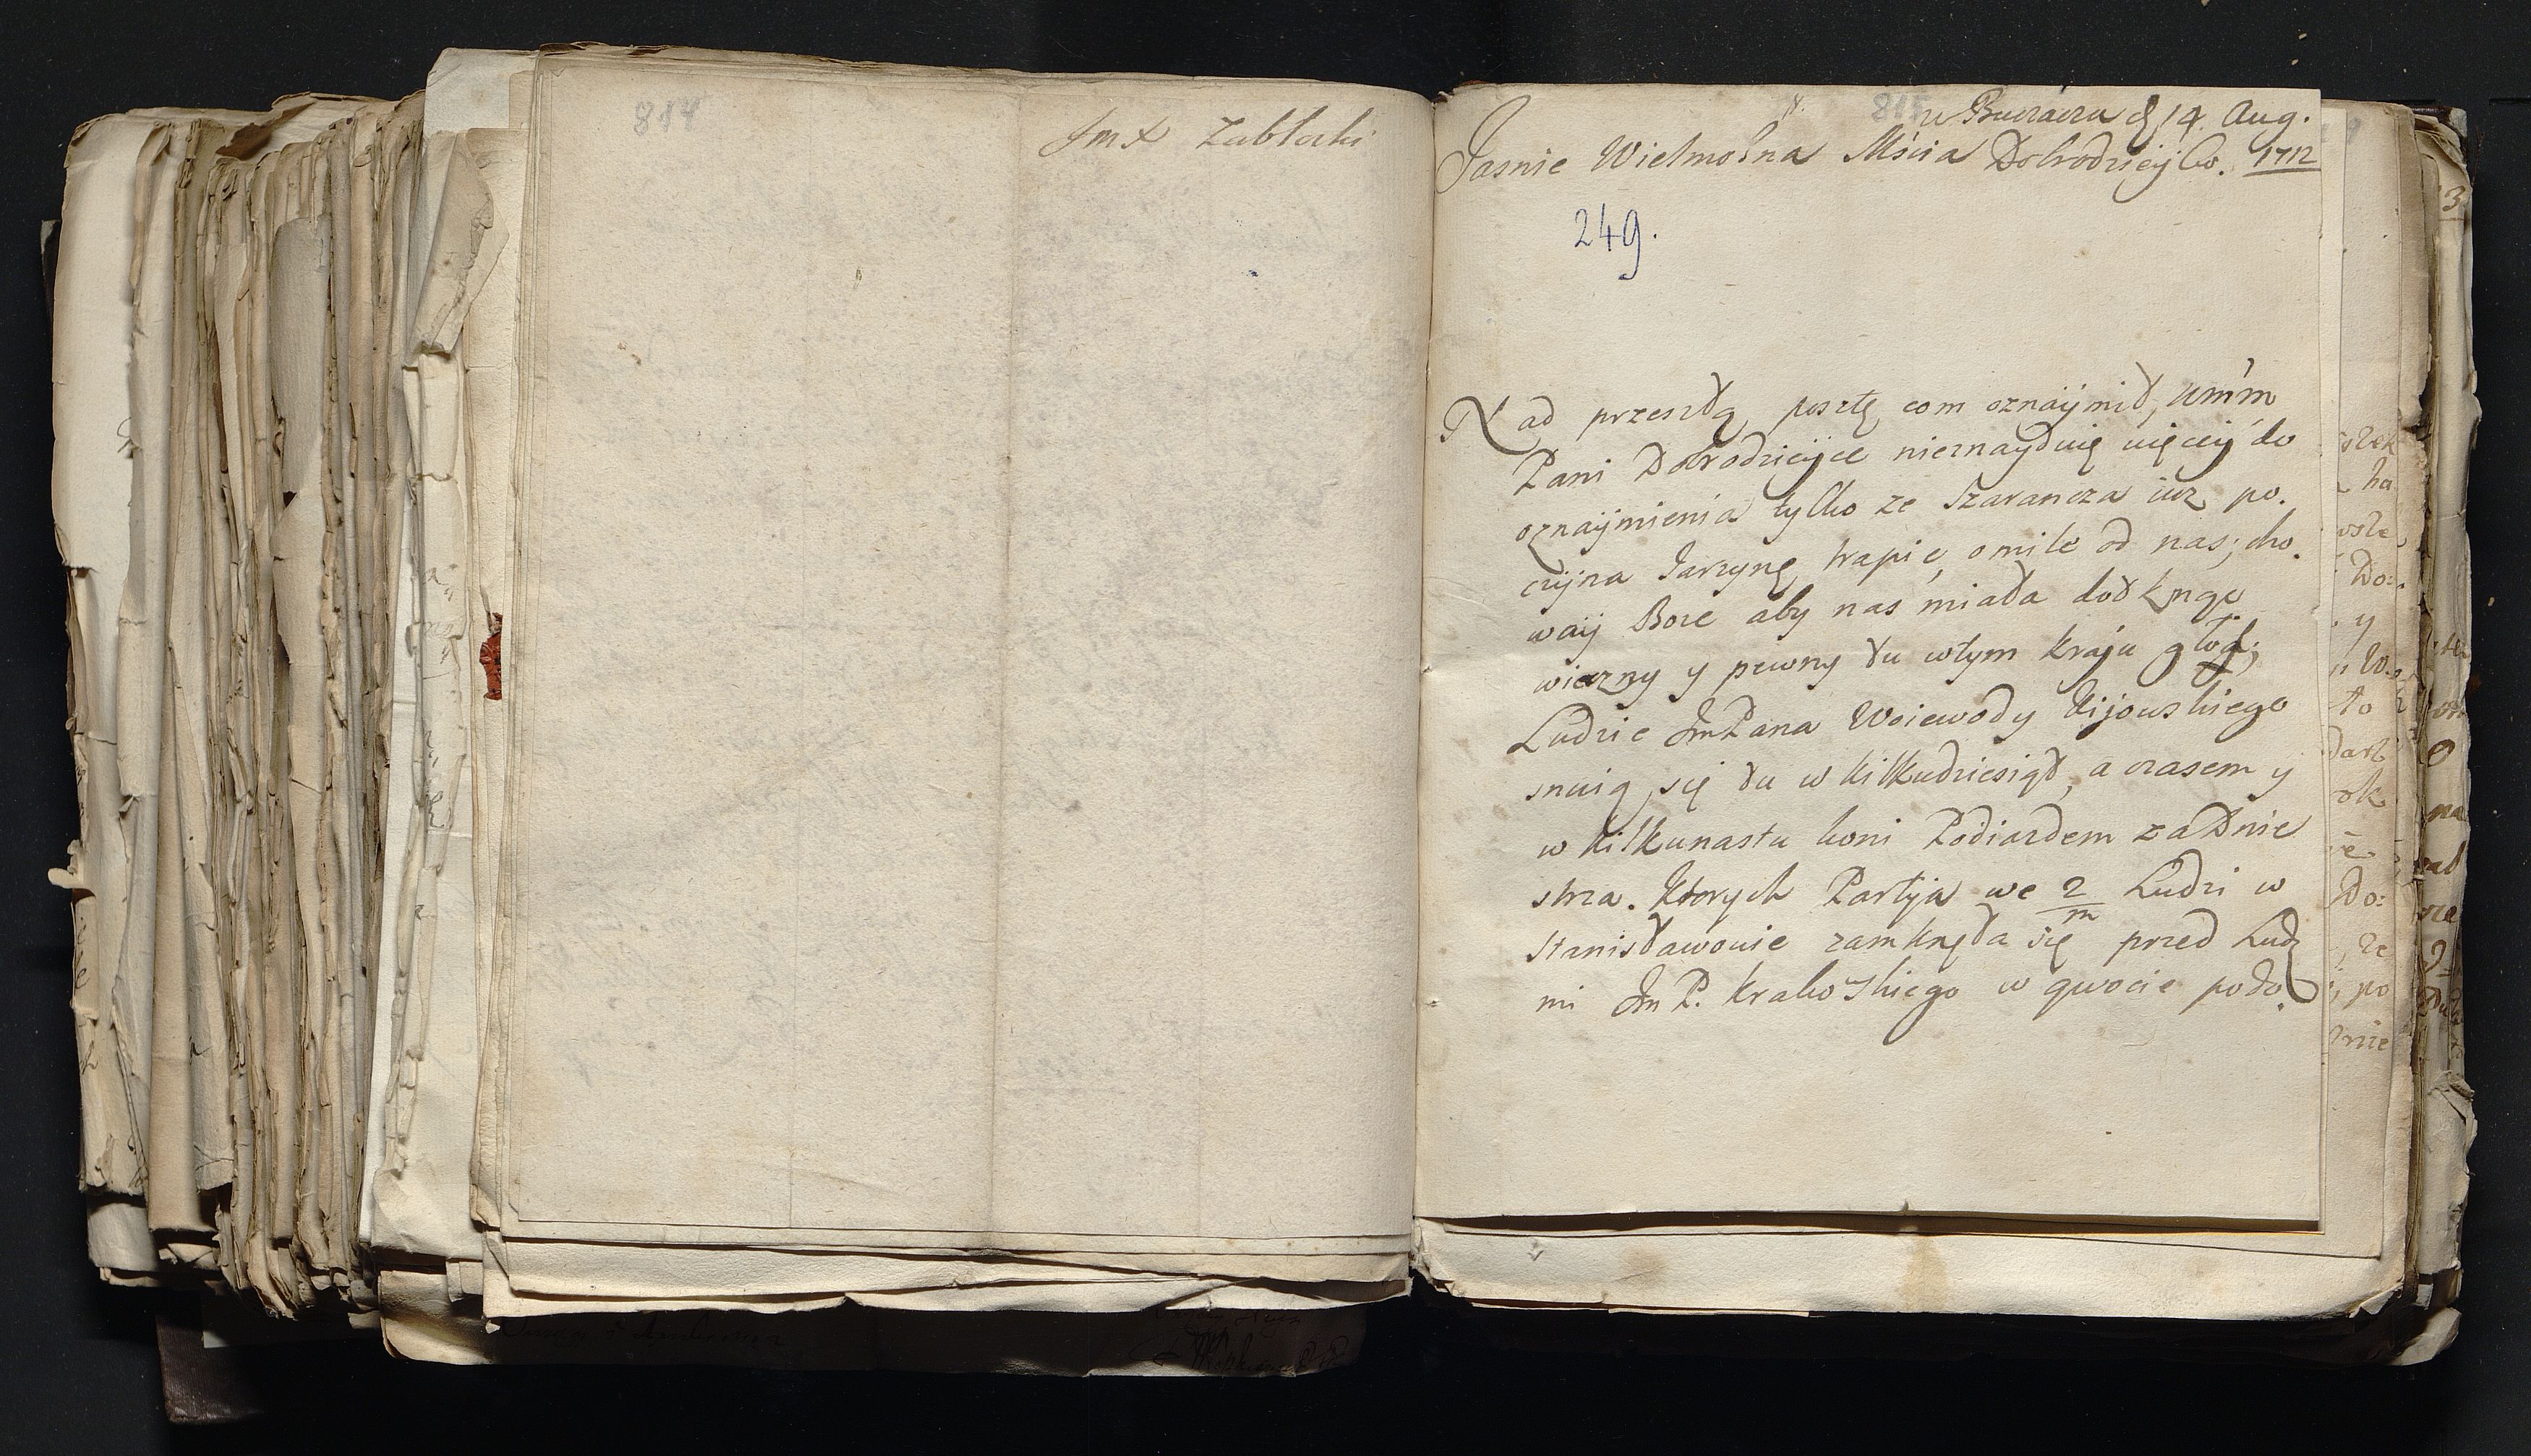 814
JmX Zabłocki
815
w Buczaczu d 14 Aug.
Jasnie Wielmożna Mścia Dobrodzieyko. 1712
249.
Nad przeszłą posztę com oznaijmił, Wmm
Pani Dobrodzieijce nieznayduię więceij do
oznaijmienia tylko ze Szarancza iuz po.
czijna Jarzynę trapić, o mile od nas; cho.
waij Boze aby nas miała dotknąc
wieczny y pewny tu wtym kraju głód;
Ludzie JmPana Woiewody Kijowskiego
snuią się tu w kilkudziesiąt, a czasem y
w kilkunastu koni Podiazdem za Dnie
strza. Ktorych Partyja we 2/m Ludzi w
Stanisławowie zamknęła się przed Ludz
mi Jm P. Krakoskiego w gwocie podo.